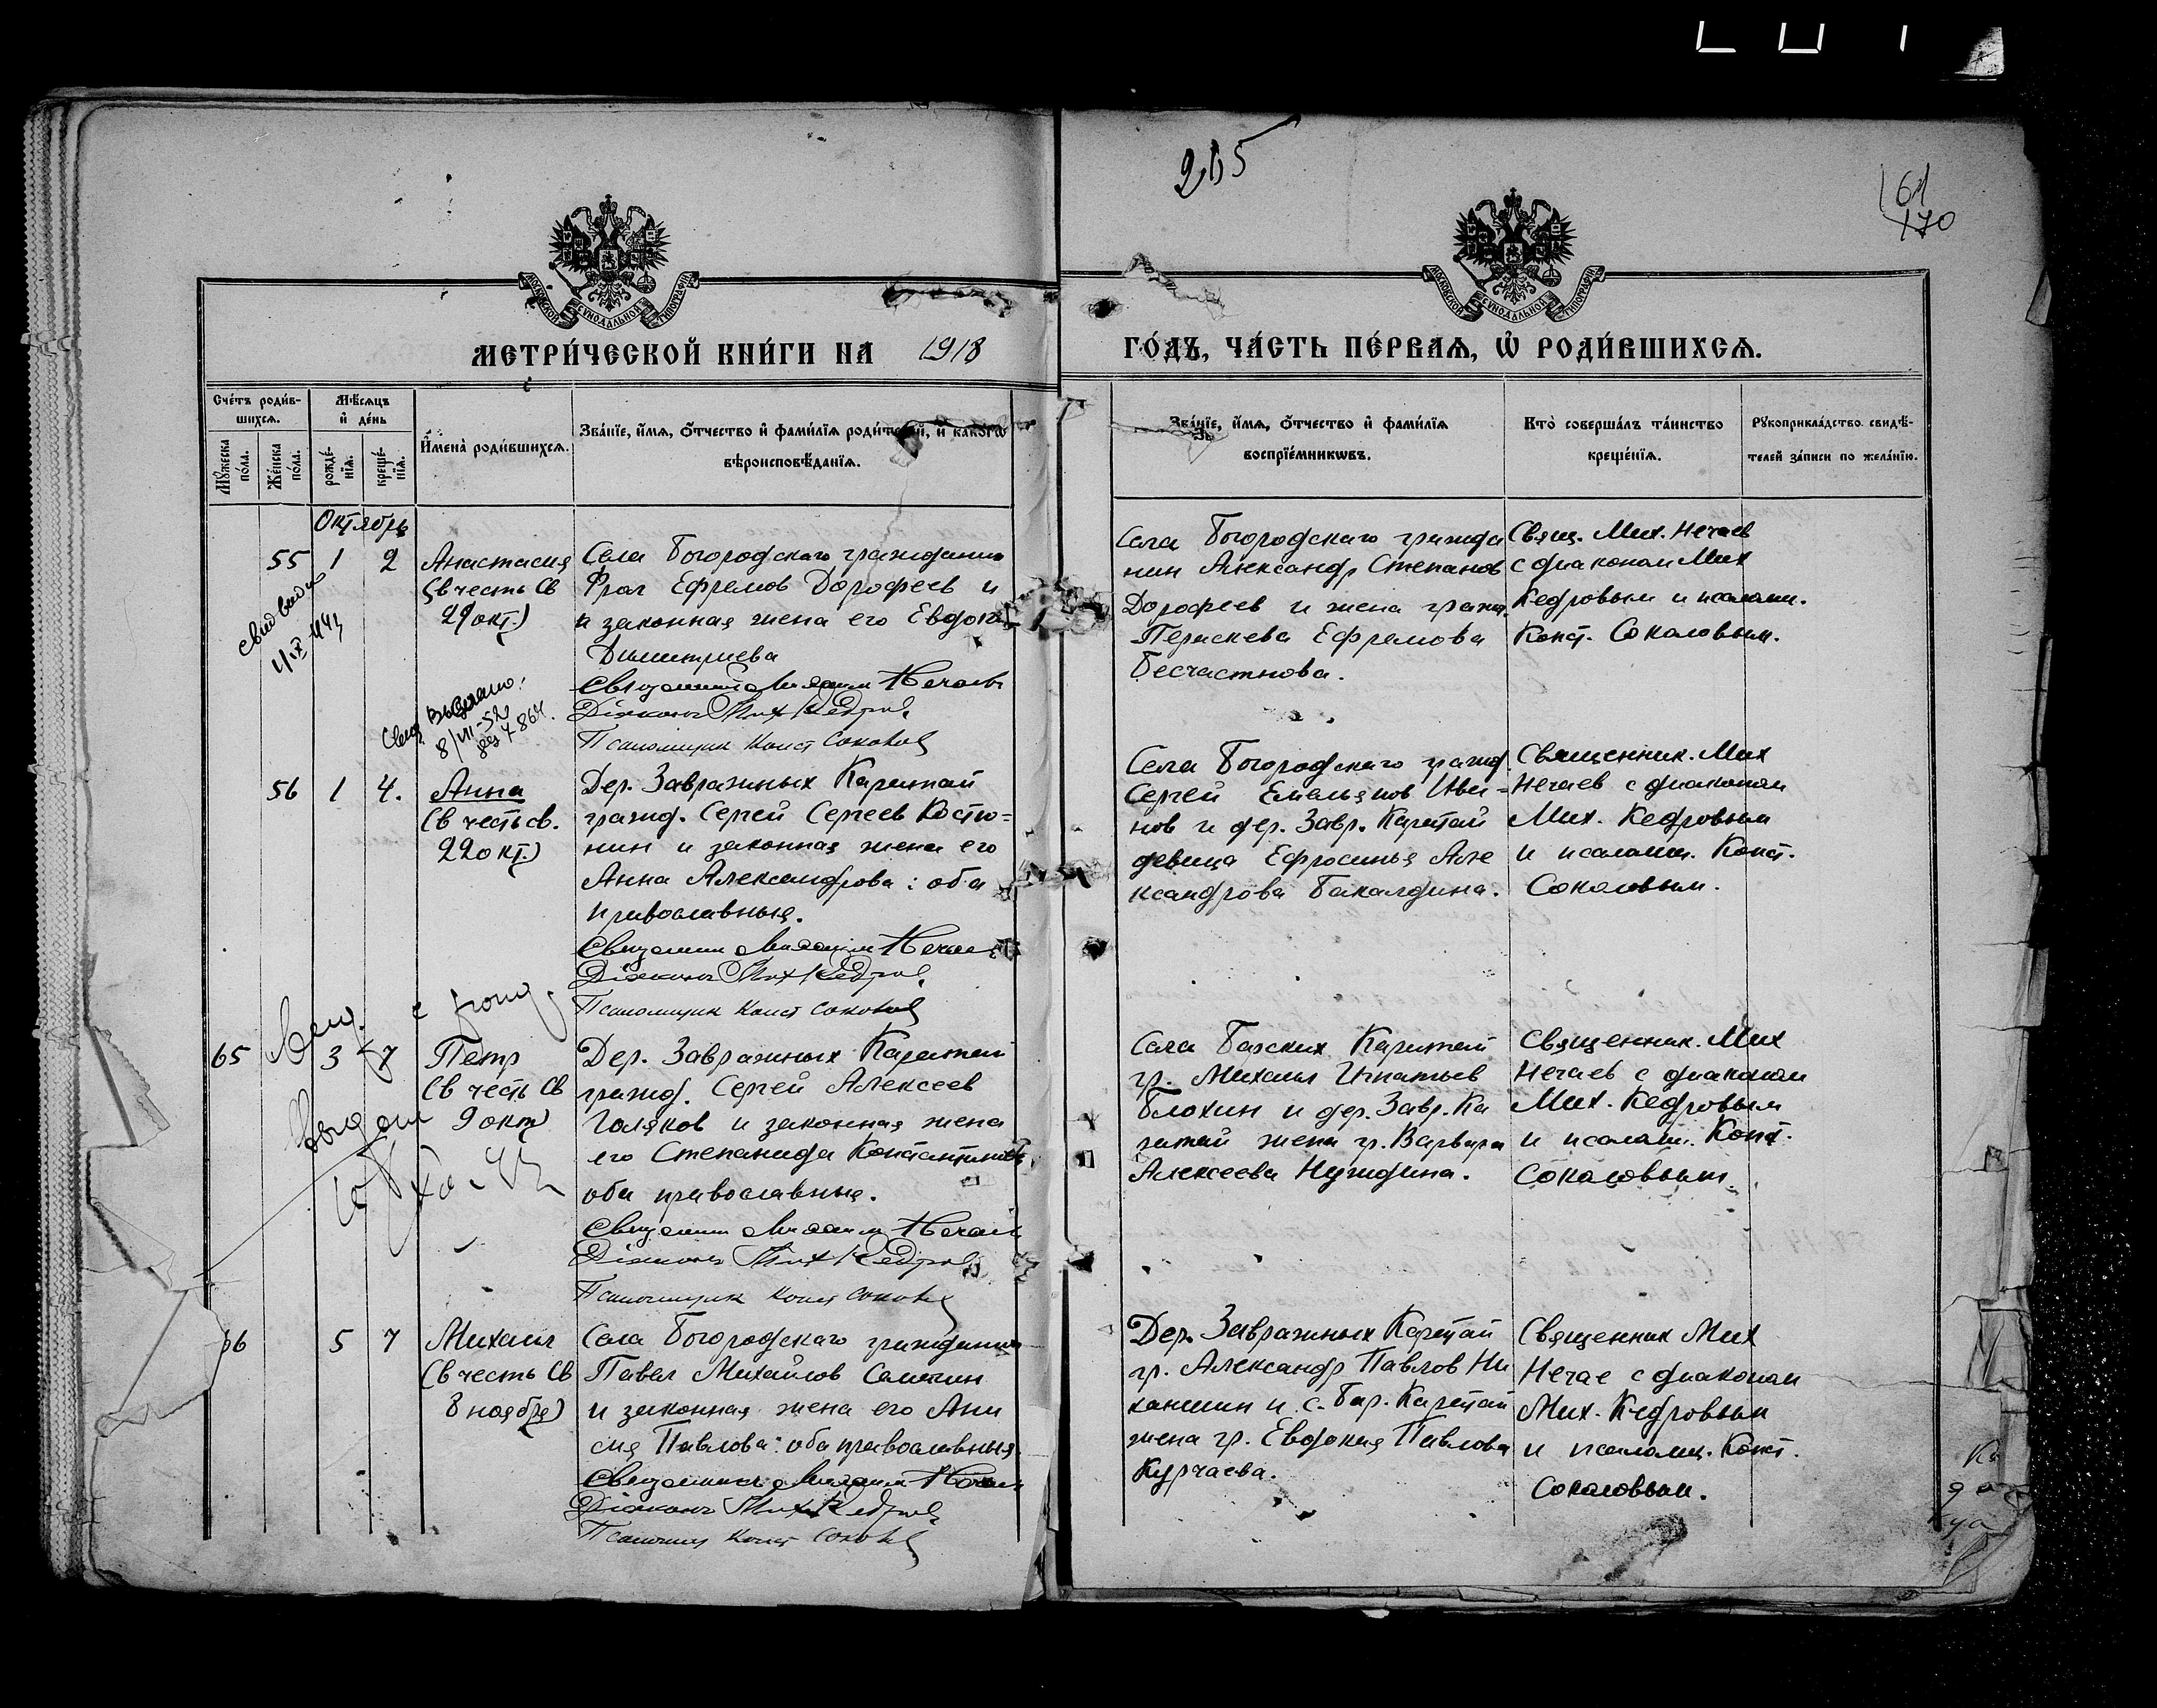 265
МЕТРИ́ЧЕСКОЙ КНИ́ГИ НА 1918
ГО́ДЪ, ЧА́СТЬ ПЕ́РВАЯ, Ѡ РОДИ́ВШИХСЯ.
МОСКОВСКОЙ СѴНОДАЛЬНОЙ ТИПОГРАФІИ
МОСКОВСКОЙ СѴНОДАЛЬНОЙ ТИПОГРАФІИ
Сче́тъ роди́в-
шихся.
Мѣ́сяцъ
и҆ де́нь
Мꙋ́жеска по́ла.
Же́нска по́ла.
рожде́-
нїѧ.
креще́-
нїѧ.
И҆мена̀ роди́вшихся.
Зва́нїе, и҆́мѧ, ѻ҆́тчество и҆ фами́лїѧ роди́телей, и҆ како́гѡ
вѣроисповѣ́данїѧ.
Зва́нїе, и҆́мѧ, ѻ҆́тчество и҆ фами́лїѧ
воспрїе́мникѡвъ.
Кто̀ соверша́лъ та́инство
креще́нїѧ.
Рꙋкоприкла́дство свидѣ́-
телей за́писи по жела́нїю.
Октябрь
55 1 2 Анастасия
(в честь св
29 окт.)
Села Богородскаго гражданин
Фрол Ефремов Дорофеев и
и законная жена его Евдокия
Димитриева
Священник Михаил Нечаев
Діаконъ Мих Кедров
Псаломщик Конст Соколов
Села Богородскаго гражда
нин Александр Степанов
Дорофеев и жена гражд.
Параскева Ефремова
Бесчастнова.
Свящ. Мих. Нечаев
с диаконом Мих
Кедровым и псаломщ.
Конст. Соколовым.
Выдано:
8/VII-52
56 1 4. Анна
(в честь св.
22 окт.)
Дер. Завражных Каратай
гражд. Сергей Сергеев Костю=
нин и законная жена его
Анна Александрова: оба
православныя.
Священник Михаил Нечаев
Діаконъ Мих Кедров
Псаломщик Конст Соколов
Села Богородскаго гражд.
Сергей Емельянов Ива-
нов и дер. Завр. Каратай
девица Ефросинья Але
ксандрова Бакалдина.
Священник. Мих
Нечаев с диаконом
Мих. Кедровым
и псаломщ. Конст.
Соколовым.
65 3 7 Петр
(в честь св
9 окт)
Дер. Завражных Каратай
гражд. Сергей Алексеев
Голяков и законная жена
его Степанида Константинова
оба православныя.
Священник Михаил Нечаев
Діаконъ Мих Кедров
Псаломщик Конст Соколов
Села Барских Каратай
гр. Михаил Игнатьев
Блохин и дер. Завр. Ка
ратай жена гр. Варвара
Алексеева Нуждина.
Священник. Мих
Нечаев с диаконом
Мих. Кедровым
и псаломщ. Конст.
Соколовым.
66 5 7 Михаил
(в честь св
8 ноября)
Села Богородскаго гражданин
Павел Михайлов
и законная жена его Ани
сия Павлова: оба православныя.
Священникъ Михаил Нечаев
Діаконъ Мих Кедров
Псаломщ Конст Соколов
Дер. Завражных Каратай
гр. Александр Павлов Ни
каншин и с. Бар. Каратай
жена гр. Евдокия Павлова
Курчаева.
Священник Мих
Нечае с диаконом
Мих. Кедровым
и псаломщ. Конст.
Соколовым.